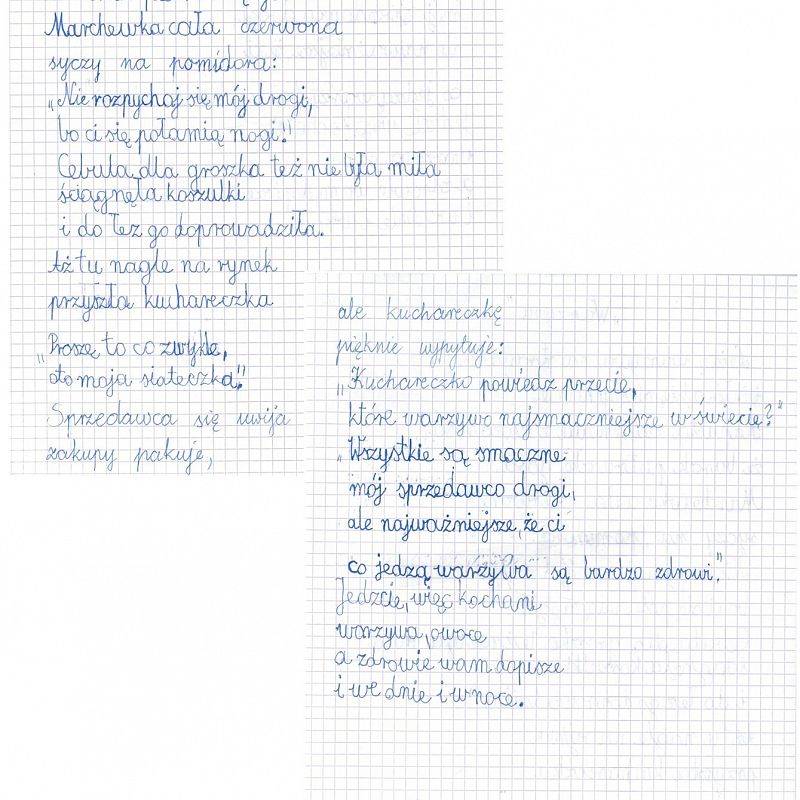 Marchewka cała czerwona
syczy na pomidora:
„Nie rozpychaj się mój drogi,
bo ci się połamią nogi!"
Cebula dla groszka też nie była miła
ściągnęła koszulki
i do łez go doprowadziła.
Aż tu nagle na rynek
przyszła kuchareczka
„Proszę to co zwykle,
oto moja siateczka".
Sprzedawca się uwija
zakupy pakuje,
ale kuchareczkę
pięknie wypytuje:
„Kuchareczko powiedz przecie,
które warzywo najsmaczniejsze w świecie?"
„Wszystkie są smaczne
mój sprzedawco drogi,
ale najważniejsze, że ci
co jedzą warzywa są bardzo zdrowi."
Jedzcie, więc kochani
warzywa, owoce
a zdrowie wam dopisze
i we dnie i w noce.